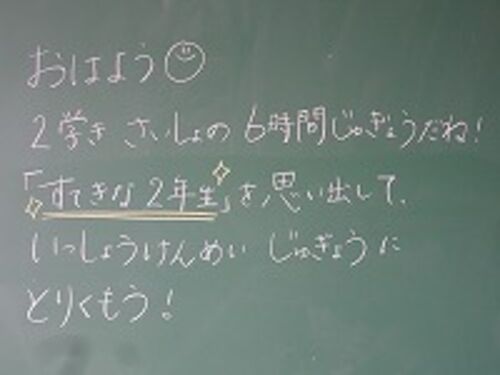 おはよう
2学き さいしょの 6時間じゅぎょうだね!
「すてきな2年生」を思い出して、
いっしょうけんめい じゅぎょうに
とりくもう!